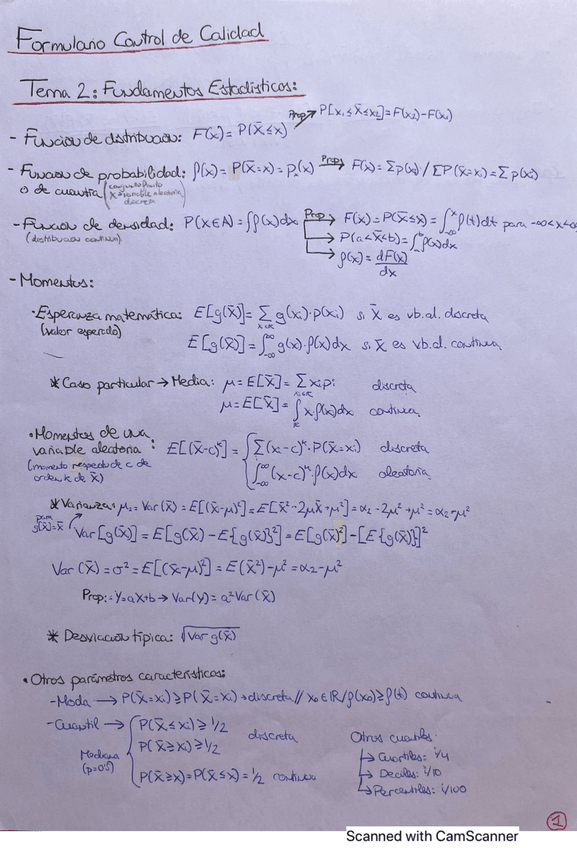 Formulario Control de Calidad
Tema 2: Fundamentos Estadísticos:
- Función de distribución: F(x) = P(X̄ ≤ x) Prop P[x₁ ≤ X̄ ≤ x₂] = F(x₂) - F(x₁)
- Función de probabilidad: p(x) = P(X̄ = x) = pₓ(x) Prop F(x) = Σp(x) / ΣP(X̄ = xᵢ) = Σp(xᵢ)
o de cuantía
discreta
- Función de densidad: P(x∈A) = ∫f(x)dx Prop F(x) = P(X̄ ≤ x) = ∫₋∞ˣ f(t)dt para -∞<x<∞
(distribución continua) P(a<X̄<b) = ∫ₐᵇ f(x)dx
f(x) = dF(x)/dx
- Momentos:
· Esperanza matemática: E[g(x̄)] = Σ g(xᵢ)·p(xᵢ) si X̄ es vb.al. discreta
(valor esperado) E[g(x̄)] = ∫₋∞^∞ g(x)·f(x)dx si X̄ es vb.al. continua
* Caso particular → Media: μ = E[X̄] = Σ xᵢpᵢ discreta
μ = E[X̄] = ∫ x f(x)dx continua
· Momentos de una
variable aleatoria : E[(X̄-c)ᵏ] = { Σ(xᵢ-c)ᵏ·P(X̄=xᵢ) discreta
(momento respecto de c de
orden k de X̄) ∫₋∞^∞ (x-c)ᵏ·f(x)dx aleatoria
* Varianza: μ₂ = Var(X̄) = E[(X̄-μ)²] = E[X̄² - 2μX̄ + μ²] = α₂ - 2μ² + μ² = α₂ - μ²
para
g(x̄)=x̄ Var[g(x̄)] = E[g(x̄) - E{g(x̄)}²] = E[g(x̄)²] - [E{g(x̄)}]²
Var(X̄) = σ² = E[(X̄-μ)²] = E(X̄²) - μ² = α₂ - μ²
Prop: Y=aX+b → Var(Y) = a² Var(X̄)
* Desviación típica: √Var g(x̄)
· Otros parámetros característicos:
- Moda → P(X̄=xᵢ) ≥ P(X̄=xᵢ) → discreta // x₀∈ℝ / f(x₀) ≥ f(t) continua
- Cuantil → { P(X̄ ≤ xᵢ) ≥ 1/2 discreta Otros cuantiles:
Mediana P(X̄ ≥ xᵢ) ≥ 1/2 → Cuartiles: i/4
(p=0'5) P(X̄ ≥ x) = P(X̄ ≤ x) = 1/2 continua → Deciles: i/10
→ Percentiles: i/100
1
Scanned with CamScanner